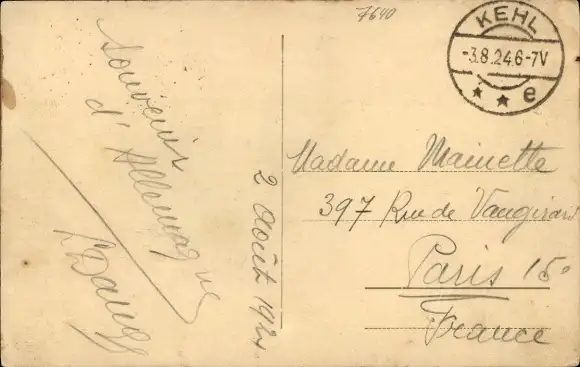 7640
KEHL
-3.8.24.6-7V
* * e
Souvenir
d'Allemagne
2 Août 1924
Madame Mainette
397 Rue de Vaugirard
Paris 15e
France